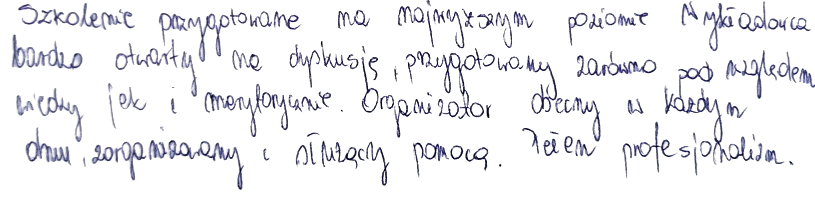 Szkolenie przygotowane na najwyższym poziomie Wykładowca
bardzo otwarty na dyskusję, przygotowany zarówno pod względem
wiedzy jak i merytorycznie. Organizator obecny w każdym
dniu, zorganizowany i służący pomocą. Pełen profesjonalizm.